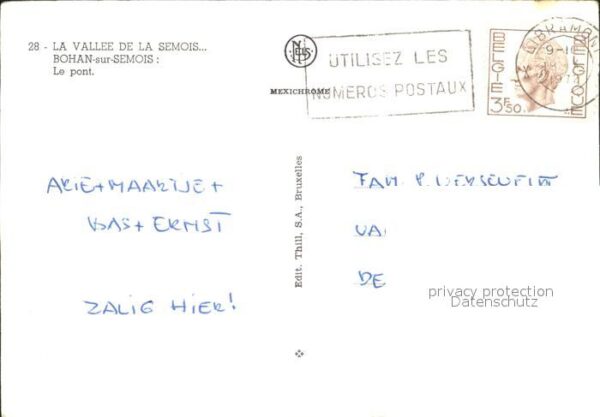 28 - LA VALLEE DE LA SEMOIS...
BOHAN-sur-SEMOIS :
Le pont.
MEXICHROME
UTILISEZ LES
NUMEROS POSTAUX
LIBRAMONT
9-10
BELGIE
BELGIQUE
3F50
Edit. Thill, S.A., Bruxelles
ARIE+MAARTJE+
BAS+ERNST
ZALIG HIER!
FAM.
DE
privacy protection
Datenschutz